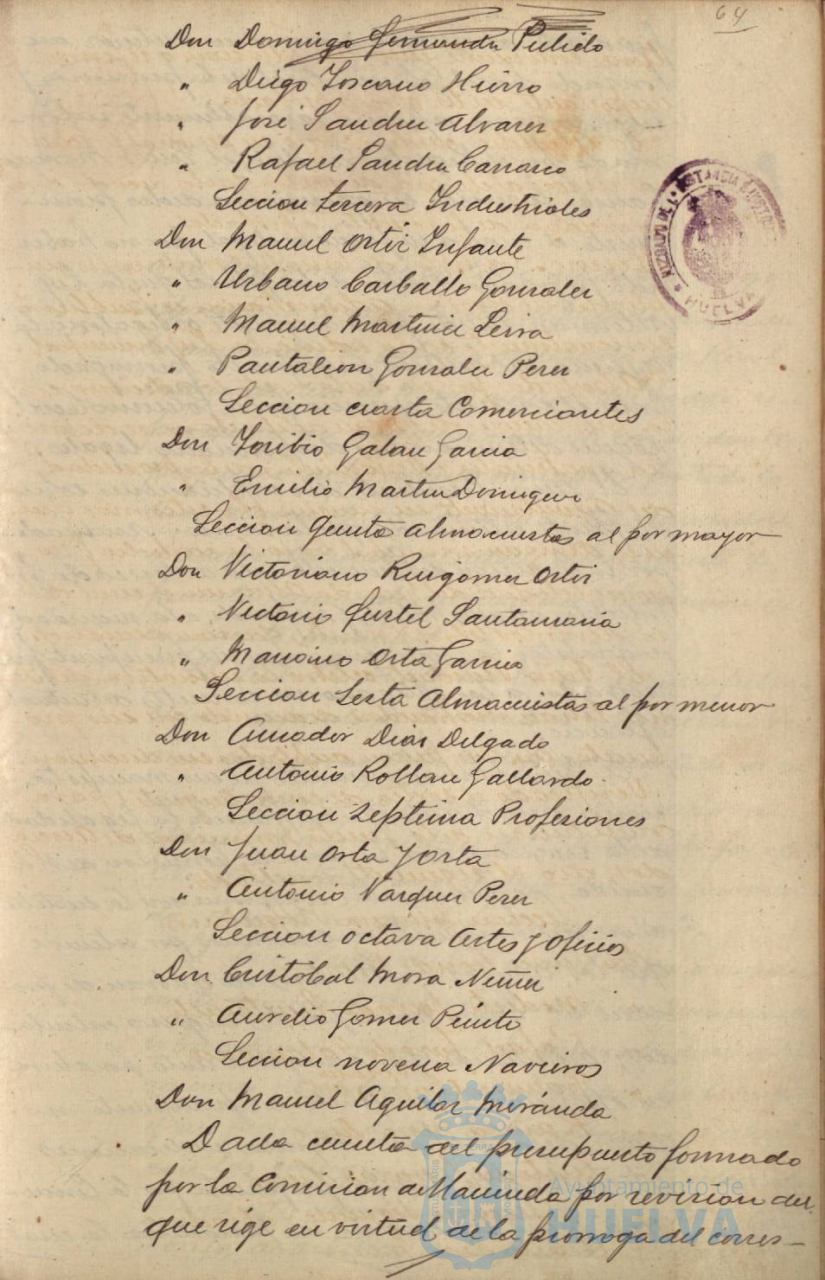 64
Don Domingo Fernandez Pulido
" Diego Toscano Hierro
" José Sanchez Alvarez
" Rafael Sanchez Carrasco
Seccion tercera Industriales
Don Manuel Ortiz Infante
" Urbano Carballo Gonzalez
" Manuel Martinez Leiva
" Pantaleon Gonzalez Perez
Seccion cuarta Comerciantes
Don Toribio Galan Garcia
" Emilio Martin Dominguez
Seccion quinta Almacenistas al por mayor
Don Victoriano Ruigomez Ortiz
" Victorio Santamaria
" Orta Garcia
Seccion sesta Almacenistas al por menor
Don Amador Diaz Delgado
" Antonio Rollan Gallardo
Seccion septima Profesiones
Don Juan Orta y Orta
" Antonio Vazquez Perez
Seccion octava Artes y oficios
Don Cristobal Mora Nuñez
" Aurelio Gomez
Seccion novena Navieros
Don Manuel Aguilar Miranda
Dada cuenta del presupuesto formado
por la Comision de Hacienda por revision del
que rige en virtud de la prorroga del corres-
HUELVA
Ayuntamiento de
HUELVA